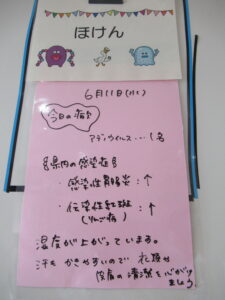 ほけん
6月11日(水)
今日の病気
アデノウイルス…1名
県内の感染症
・感染性胃腸炎：↑
・伝染性紅斑：↑
(りんご病)
湿度が上がっています。
汗も かきやすいので
皮膚の清潔を心がけ
ましょう